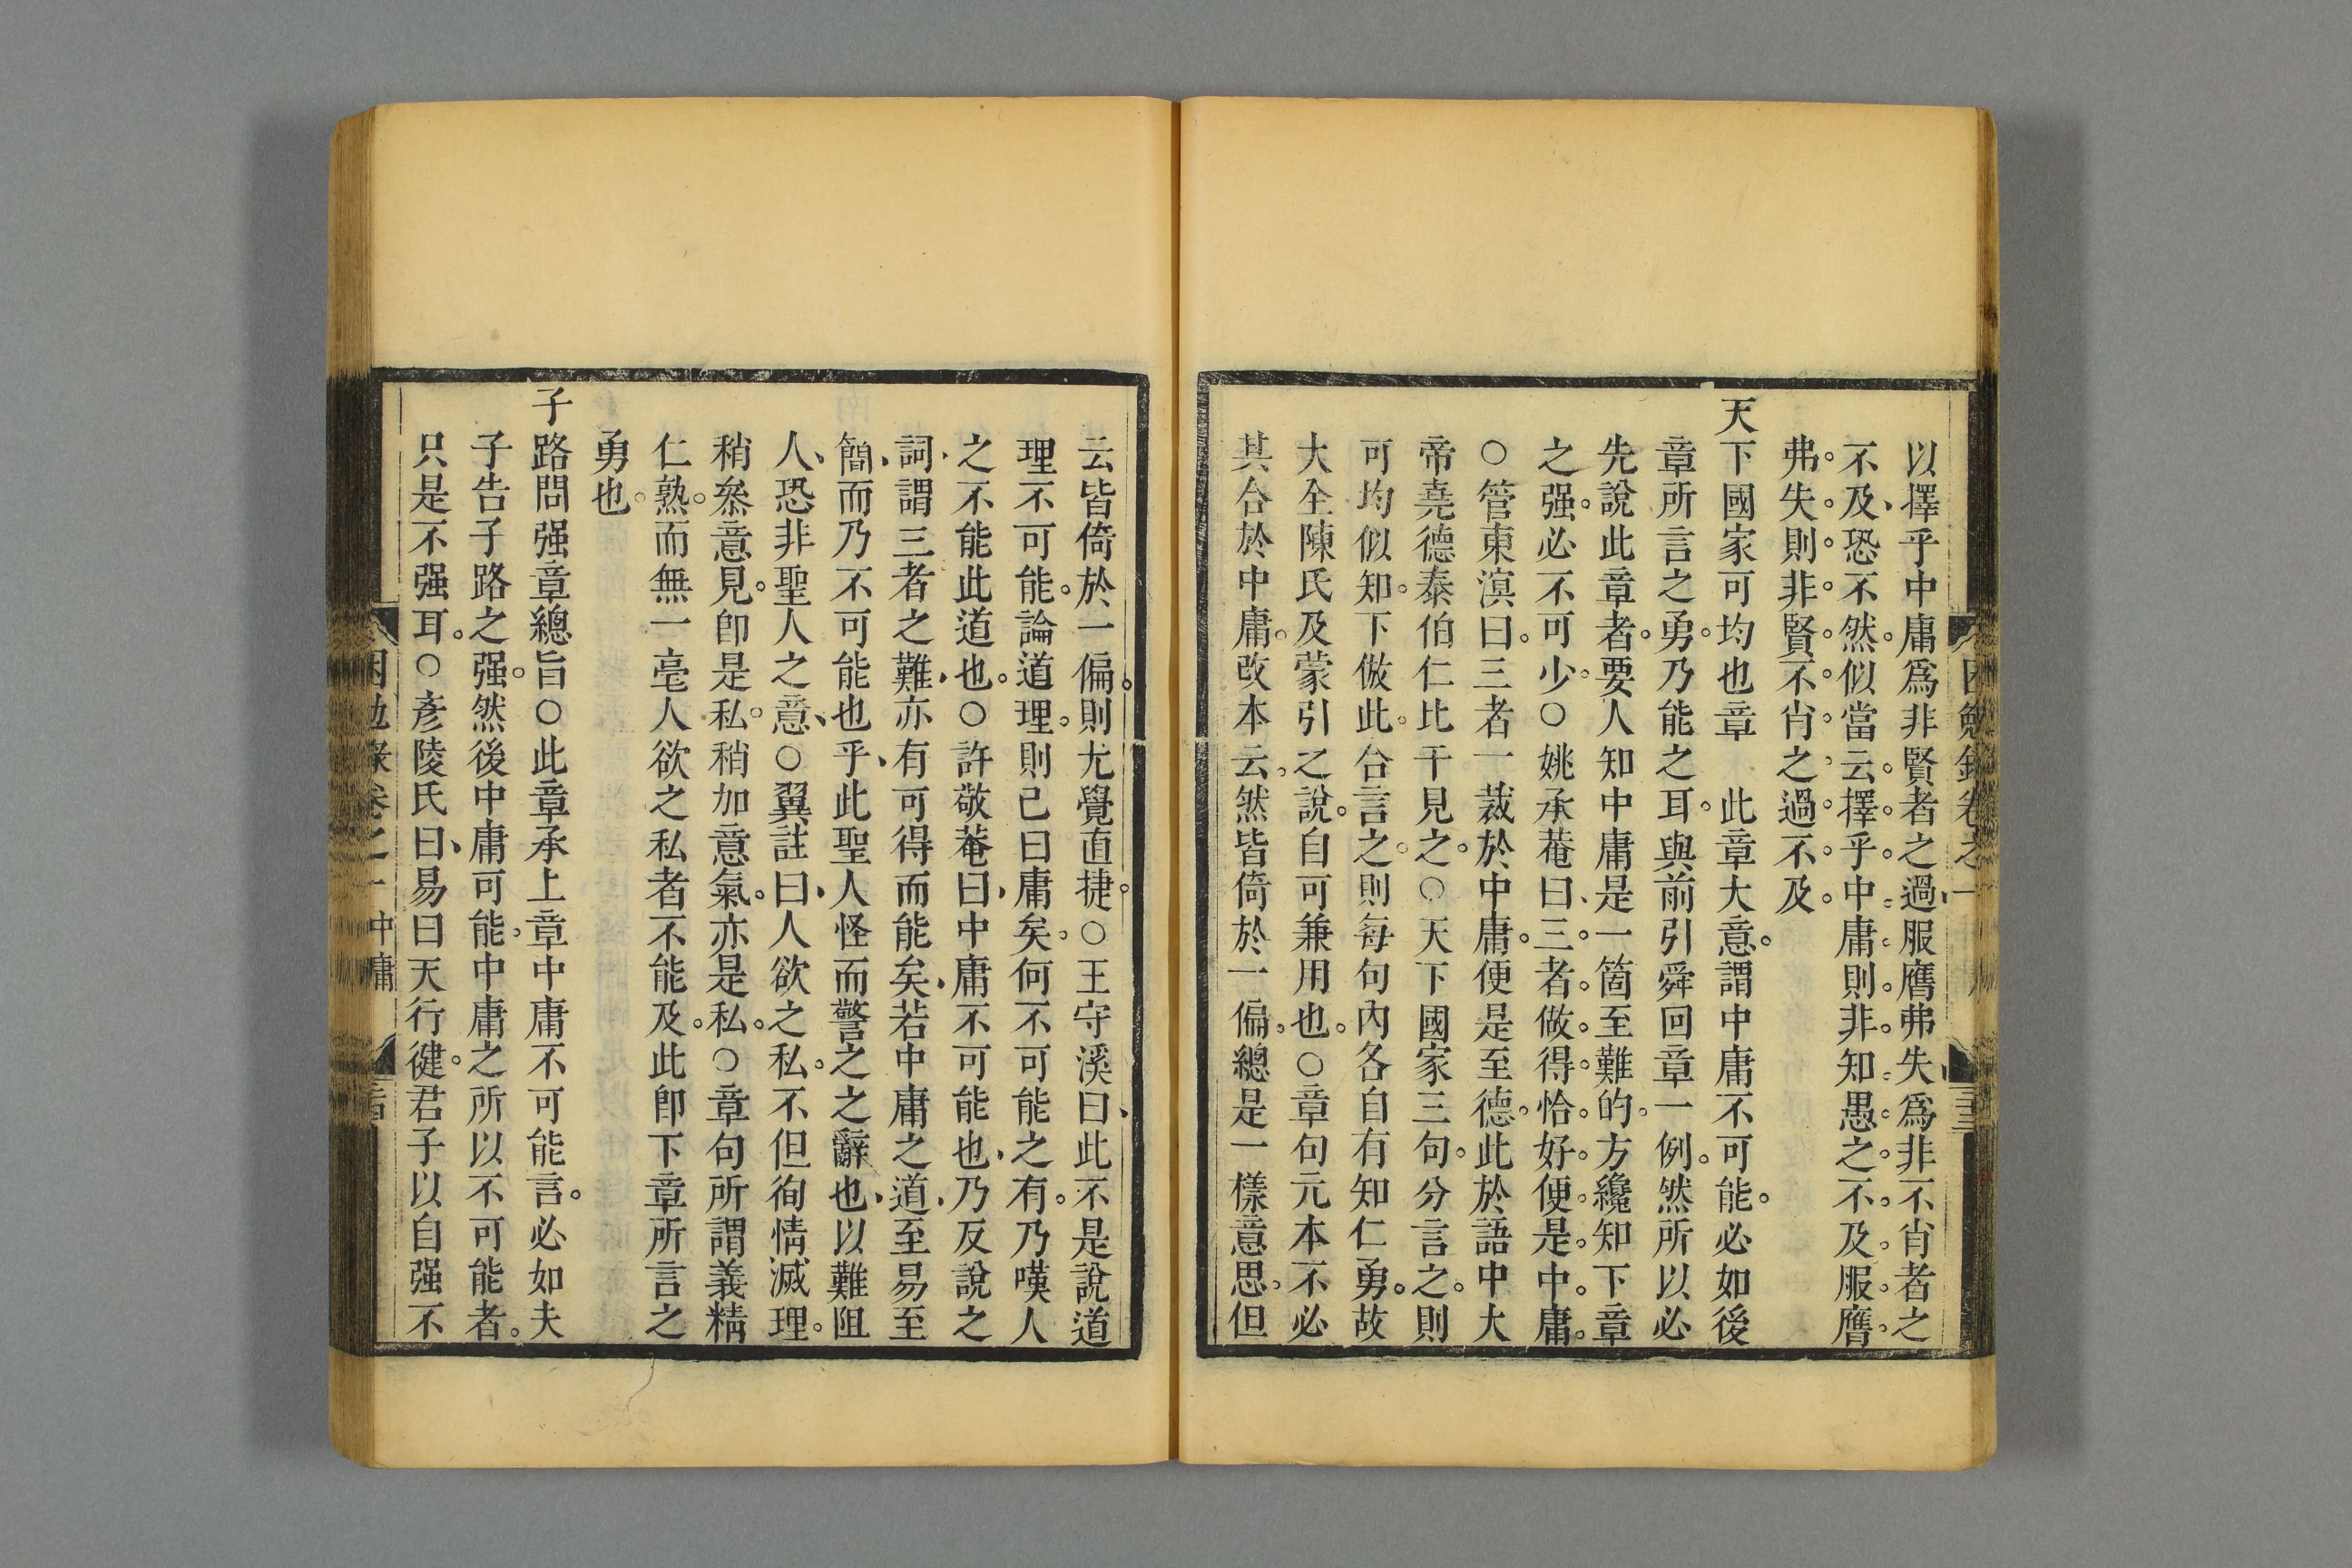 困勉錄卷之一
以擇乎中庸爲非賢者之過服膺弗失爲非不肖者之
不及恐不然似當云擇乎中庸則非知愚之不及服膺
弗失則非賢不肖之過不及
天下國家可均也章　此章大意謂中庸不可能必如後
章所言之勇乃能之耳與前引舜回章一例然所以必
先說此章者要人知中庸是一箇至難的方纔知下章
之强必不可少○姚承菴曰三者做得恰好便是中庸
○管東溟曰三者一裁於中庸便是至德此於語中大
帝堯德泰伯仁比干見之○天下國家三句分言之則
可均似知下倣此合言之則每句內各自有知仁勇故
大全陳氏及蒙引之說自可兼用也○章句元本不必
其合於中庸改本云然皆倚於一偏總是一樣意思但
云皆倚於一偏則尤覺直捷○王守溪曰此不是說道
理不可能論道理則已曰庸矣何不可能之有乃嘆人
之不能此道也○許敬菴曰中庸不可能也乃反說之
詞謂三者之難亦有可得而能矣若中庸之道至易至
簡而乃不可能也乎此聖人怪而警之之辭也以難阻
人恐非聖人之意○翼註曰人欲之私不但徇情滅理
稍叅意見卽是私稍加意氣亦是私○章句所謂義精
仁熟而無一毫人欲之私者不能及此卽下章所言之
勇也
子路問强章總旨○此章承上章中庸不可能言必如夫
子告子路之强然後中庸可能中庸之所以不可能者
只是不强耳○彥陵氏曰易曰天行健君子以自强不
困勉錄卷之一 中庸